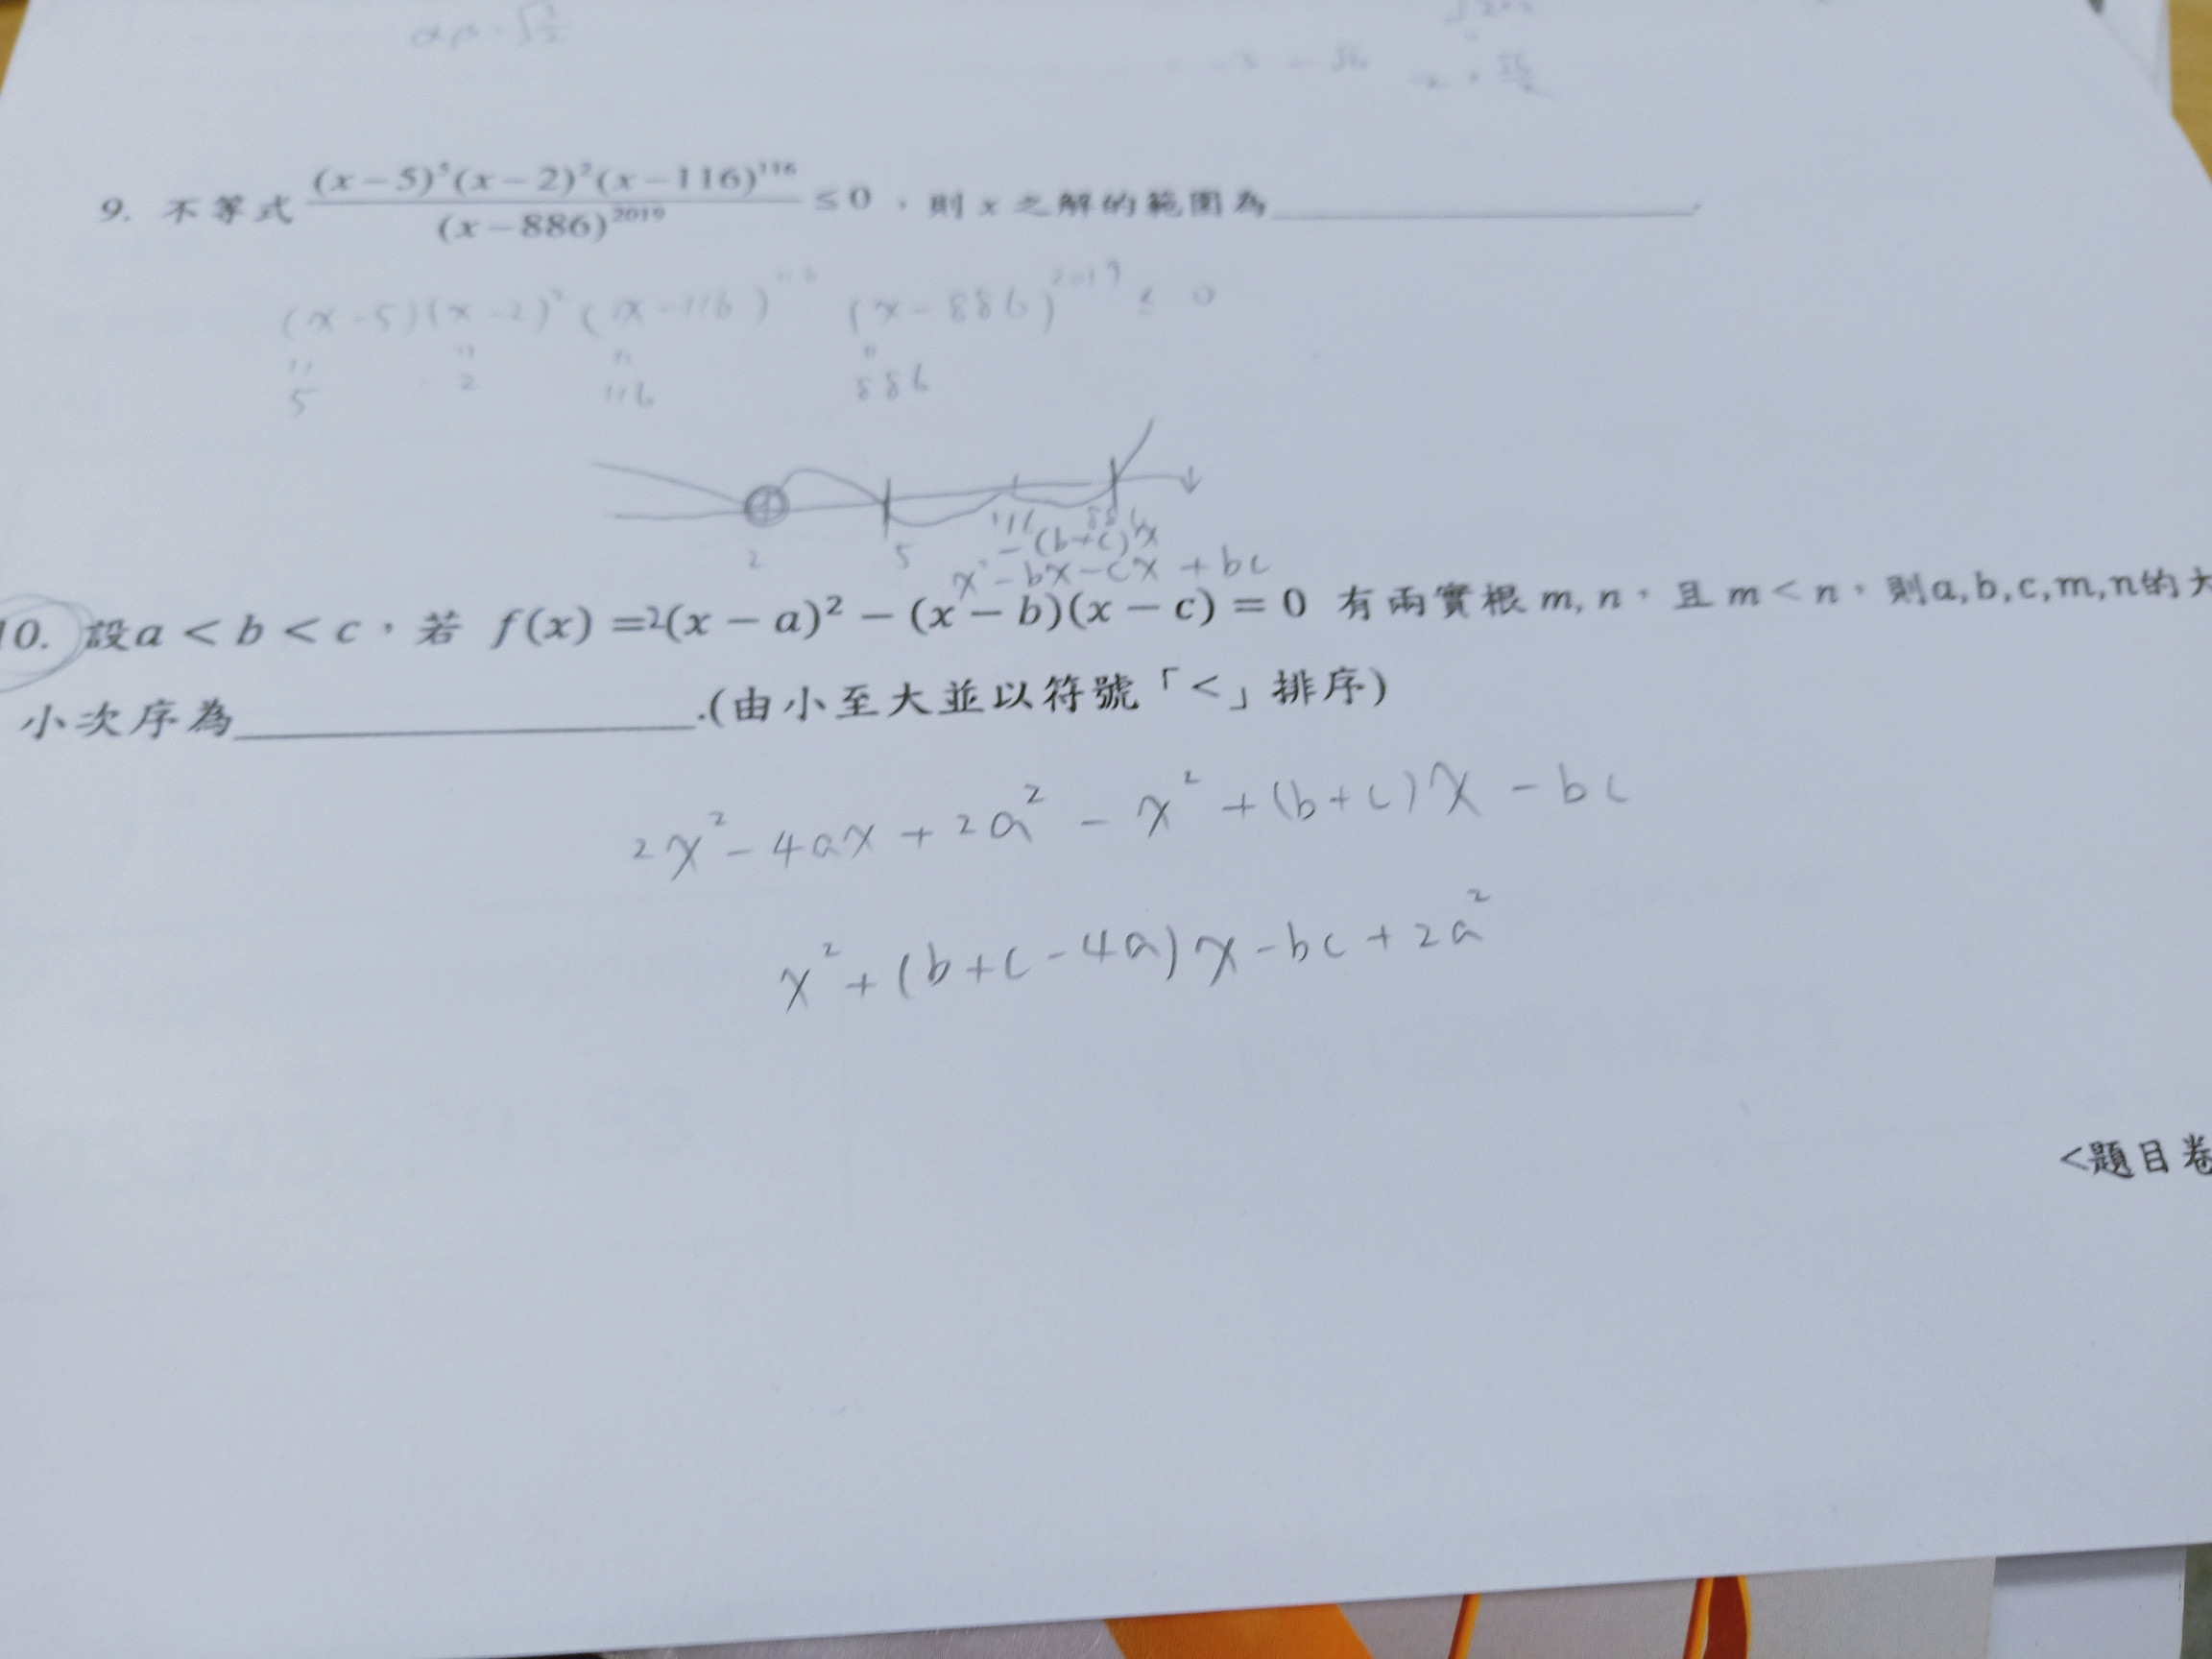 αβ = √(3/2)
9. 不等式 (x−5)⁵(x−2)²(x−116)¹¹⁶ / (x−886)²⁰¹⁹ ≤ 0，則 x 之解的範圍為____________.
(x-5)(x-2)² (x-116)¹¹⁶ (x-886)²⁰¹⁹ ≤ 0
5 2 116 886
2 5 116 886
-(b+c)x
x²-bx-cx+bc
10. 設a < b < c，若 f(x) =2(x − a)² − (x − b)(x − c) = 0 有兩實根 m, n，且 m < n，則a,b,c,m,n的大
小次序為____________.(由小至大並以符號「<」排序)
2x²-4ax+2a²-x²+(b+c)x-bc
x²+(b+c-4a)x-bc+2a²
<題目卷